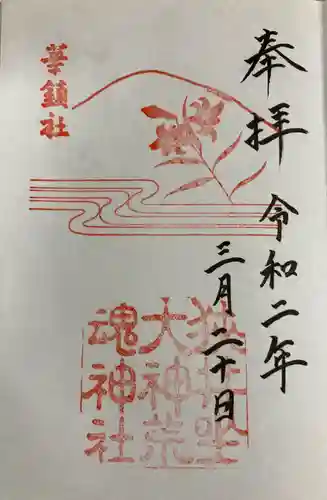 奉拝
令和二年
三月二十日
華鎮社
狭井坐
大神荒
魂神社